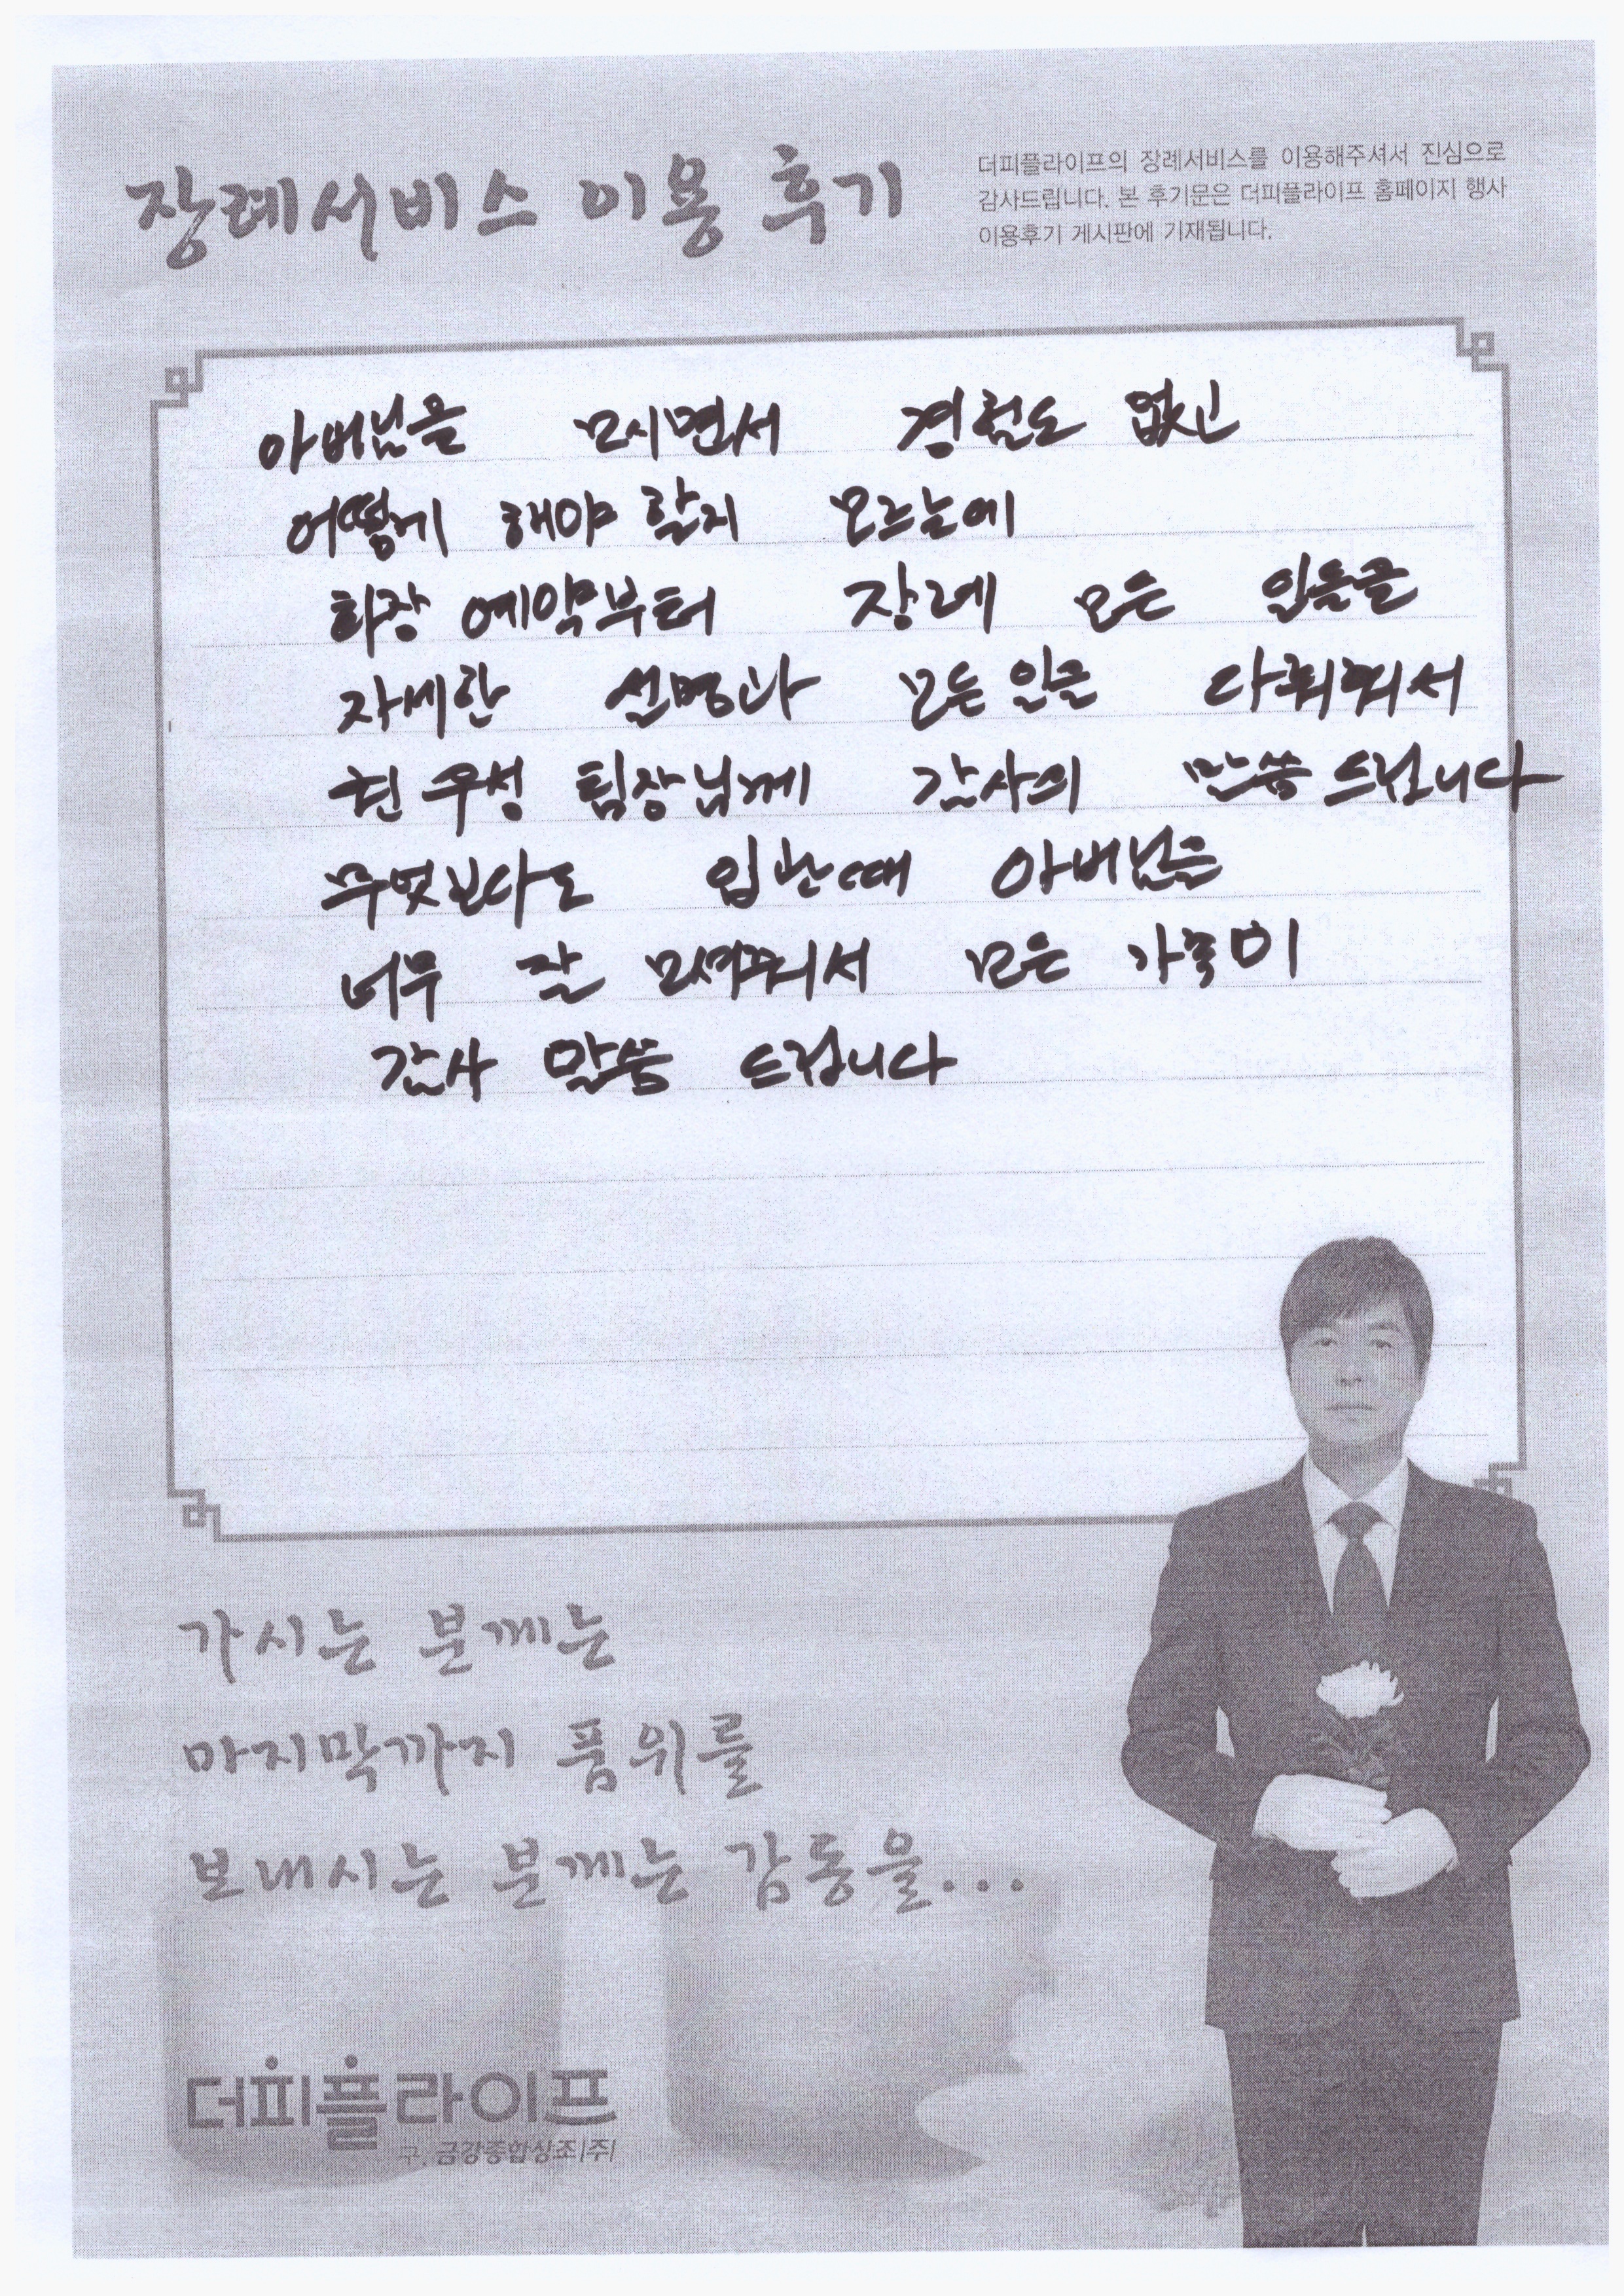 장례서비스 이용 후기
더피플라이프의 장례서비스를 이용해주셔서 진심으로
감사드립니다. 본 후기문은 더피플라이프 홈페이지 행사
이용후기 게시판에 기재됩니다.
아버님을 모시면서 경험도 없고
어떻게 해야 할지 모르는에
화장 예약부터 장례 모든 일들을
자세한 설명과 모든 일을 다춰줘서
현우성 팀장님께 감사의 말씀 드립니다
무엇보다도 입관때 아버님을
너무 잘 모셔줘서 모든 가족이
감사 말씀 드립니다
가시는 분께는
마지막까지 품위를
보내시는 분께는 감동을...
더피플라이프
구. 금강종합상조(주)